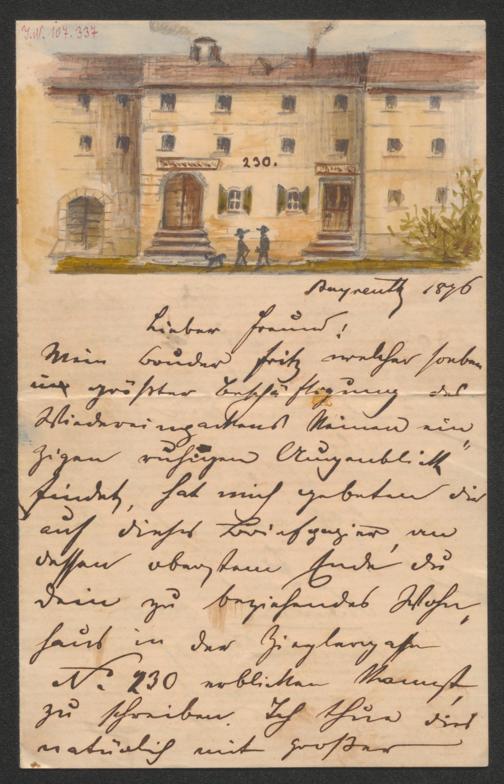 J.N. 107.337
230.
Bayreuth 1876
Lieber Freund!
Mein Bruder Fritz welcher soeben
in größter Beschäftigung des
Wiedereinpackens keinen ein
zigen ruhigen Augenblick
findet, hat mich gebeten dir
auf dieses Briefpapier, an
dessen oberstem Ende du
dein zu beziehendes Wohn,
haus in der Zieglergasse
No. 230 erblicken kannst,
zu schreiben. Ich thue dies
natürlich mit großer